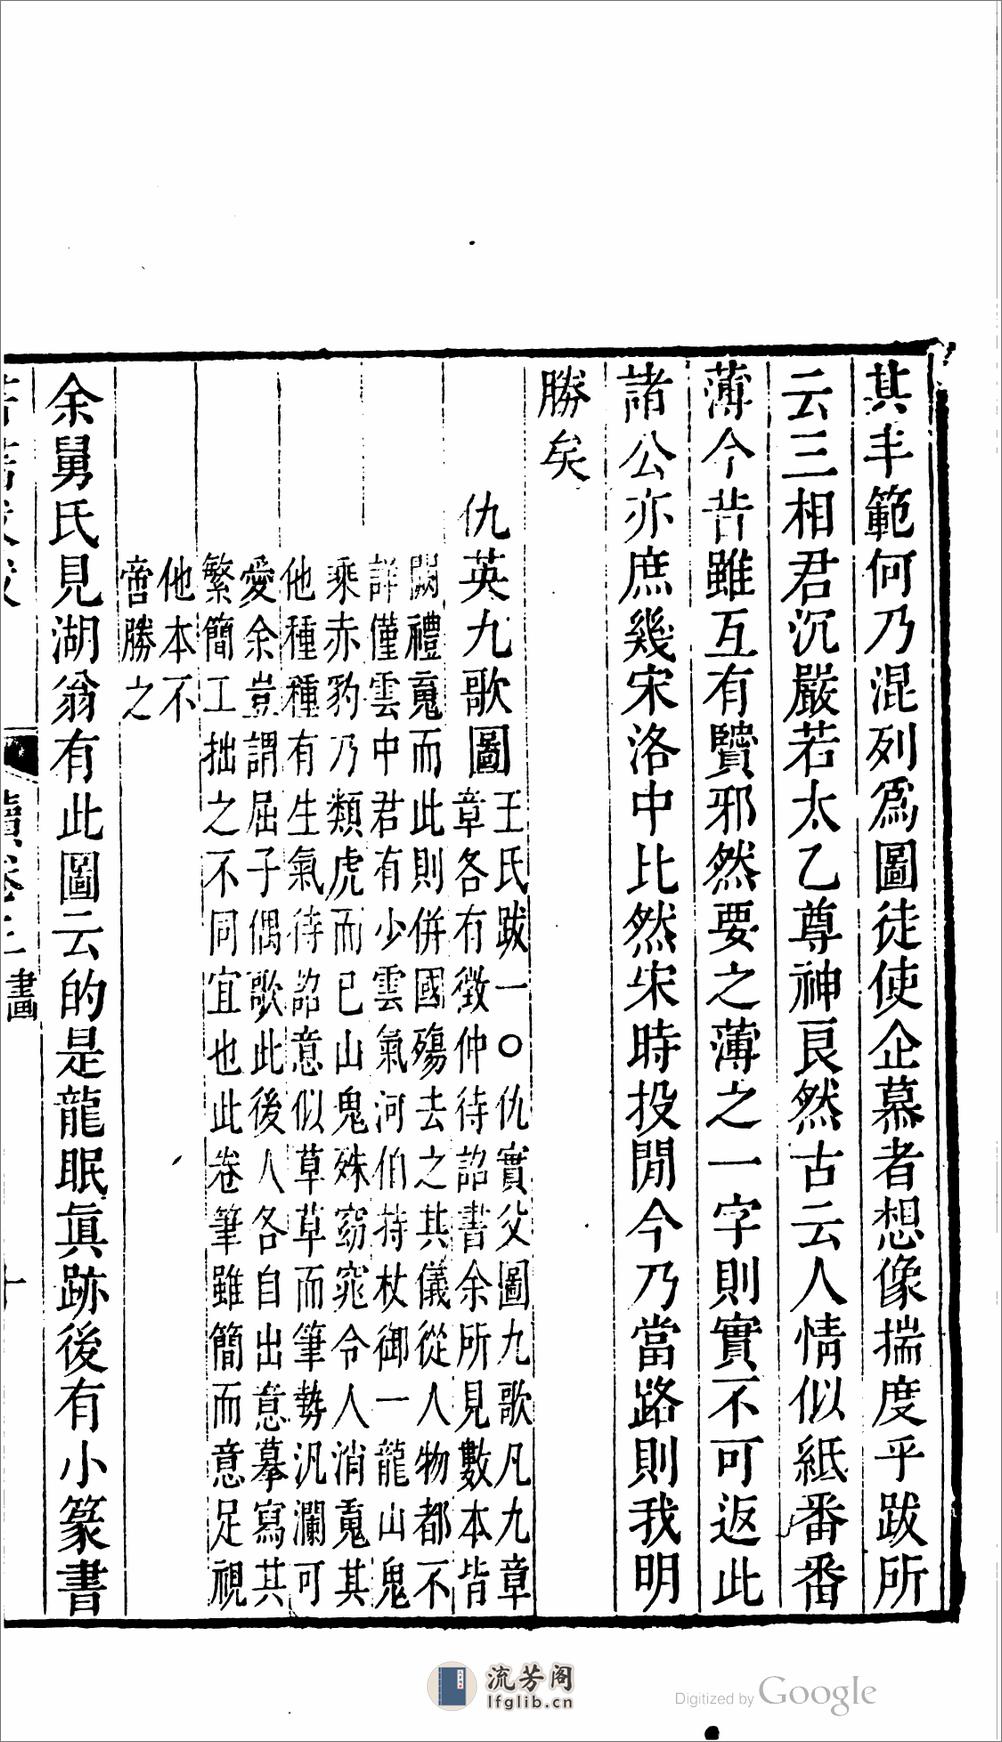 其丰範何乃混列爲圖徒使企慕者想像揣度乎跋所
云三相君沉嚴若太乙尊神良然古云人情似紙番番
薄今昔雖互有贒邪然要之薄之一字則實不可返此
諸公亦庶幾宋洛中比然宋時投閒今乃當路則我明
勝矣
仇英九歌圖
王氏跋一〇仇實父圖九歌凡九章
章各有徵仲待詔書余所見數本皆
闕禮䰟而此則併國殤去之其儀從人物都不
詳僅雲中君有少雲氣河伯持杖御一龍山鬼
乘赤豹乃類虎而已山鬼殊窈窕令人消䰟其
他種種有生氣待詔意似草草而筆勢汎瀾可
愛余豈謂屈子偶歌此後人各自出意摹寫其
繁簡工拙之不同宜也此卷筆雖簡而意足視
他本不
啻勝之
余舅氏見湖翁有此圖云的是龍眠眞跡後有小篆書
畫
流芳阁
lfglib.cn
Digitized by Google